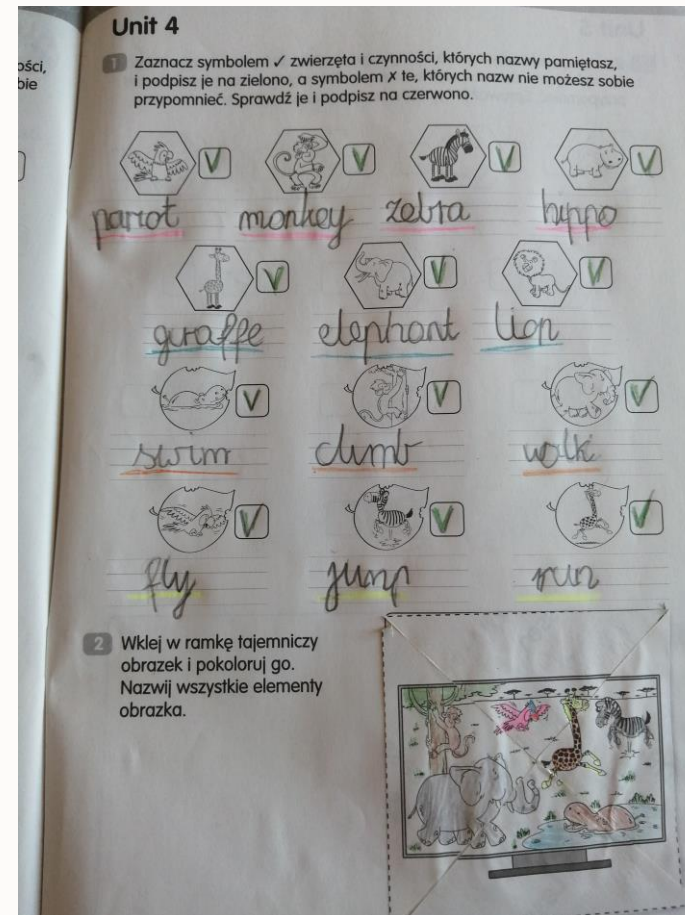 ości,
bie
Unit 4
1 Zaznacz symbolem ✓ zwierzęta i czynności, których nazwy pamiętasz,
i podpisz je na zielono, a symbolem ✗ te, których nazw nie możesz sobie
przypomnieć. Sprawdź je i podpisz na czerwono.
parrot monkey zebra hippo
giraffe elephant lion
swim climb walk
fly jump run
2 Wklej w ramkę tajemniczy
obrazek i pokoloruj go.
Nazwij wszystkie elementy
obrazka.